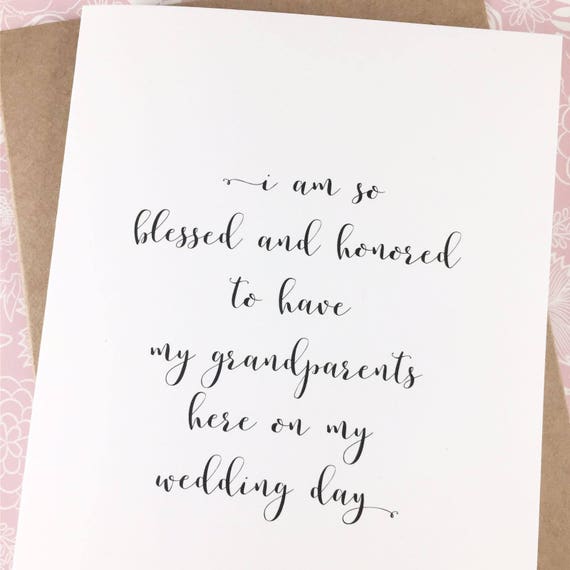 i am so
blessed and honored
to have
my grandparents
here on my
wedding day